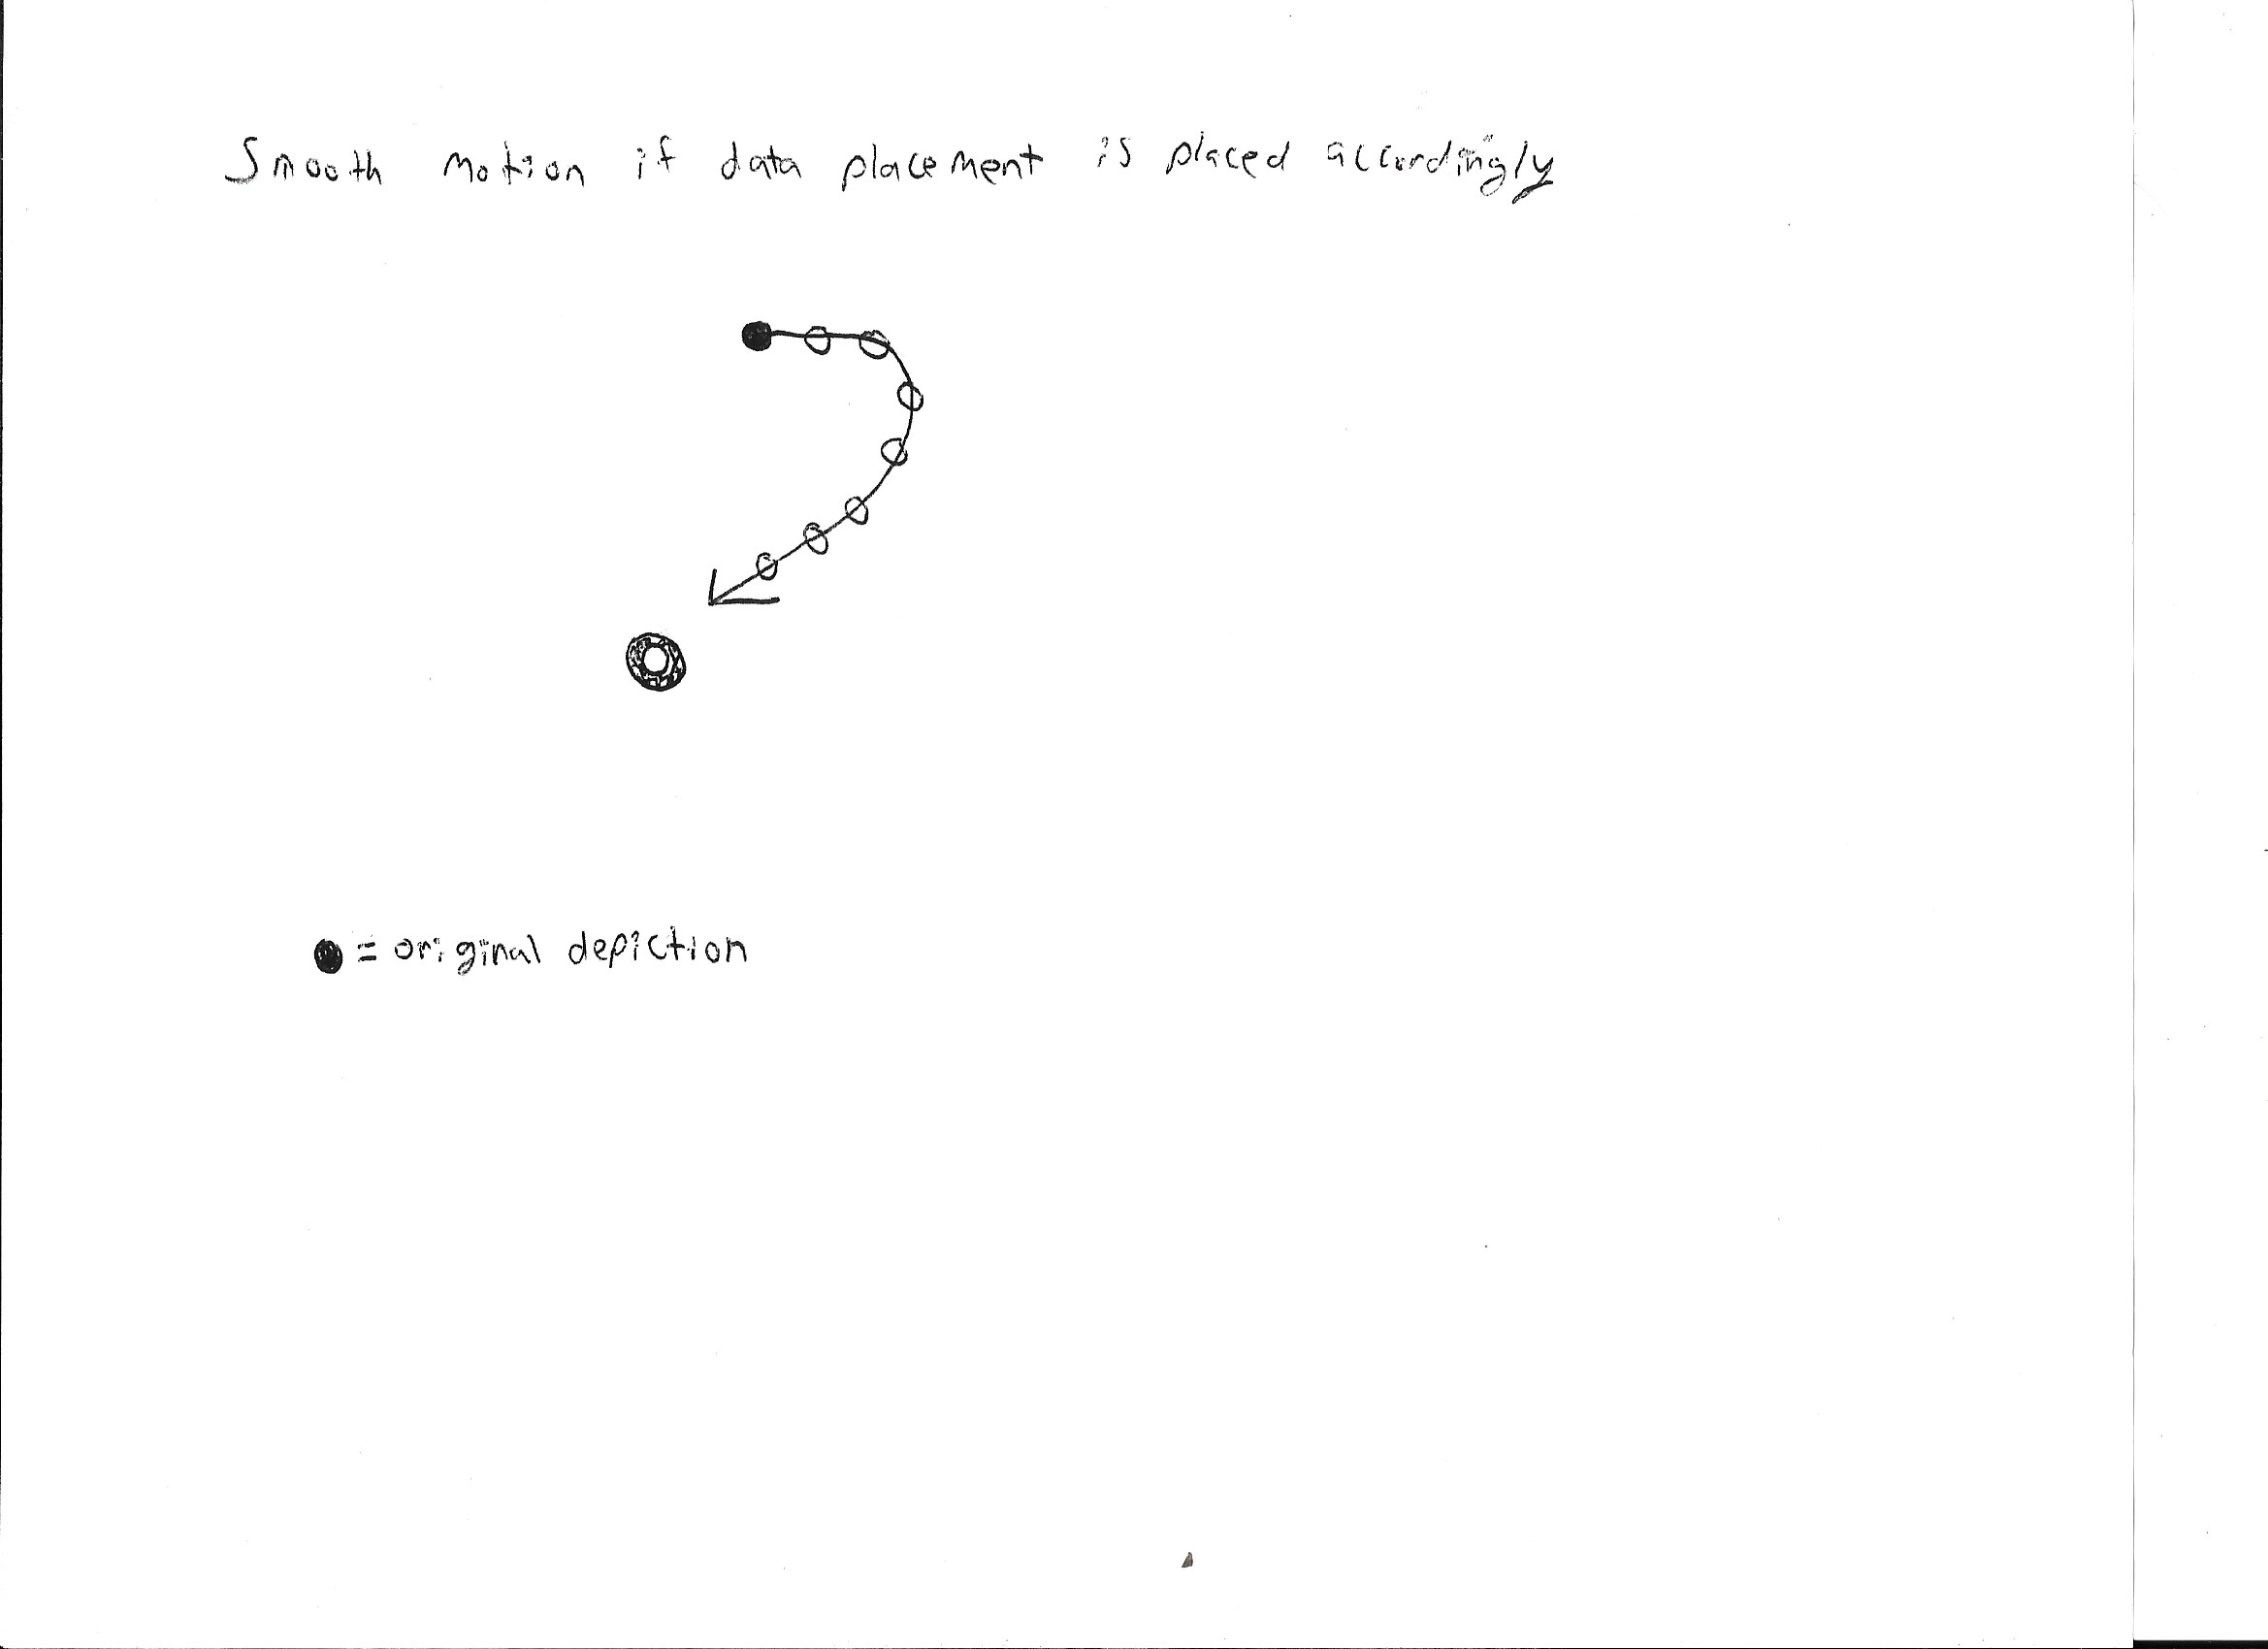 Smooth motion if data placement is placed accordingly
= original depiction